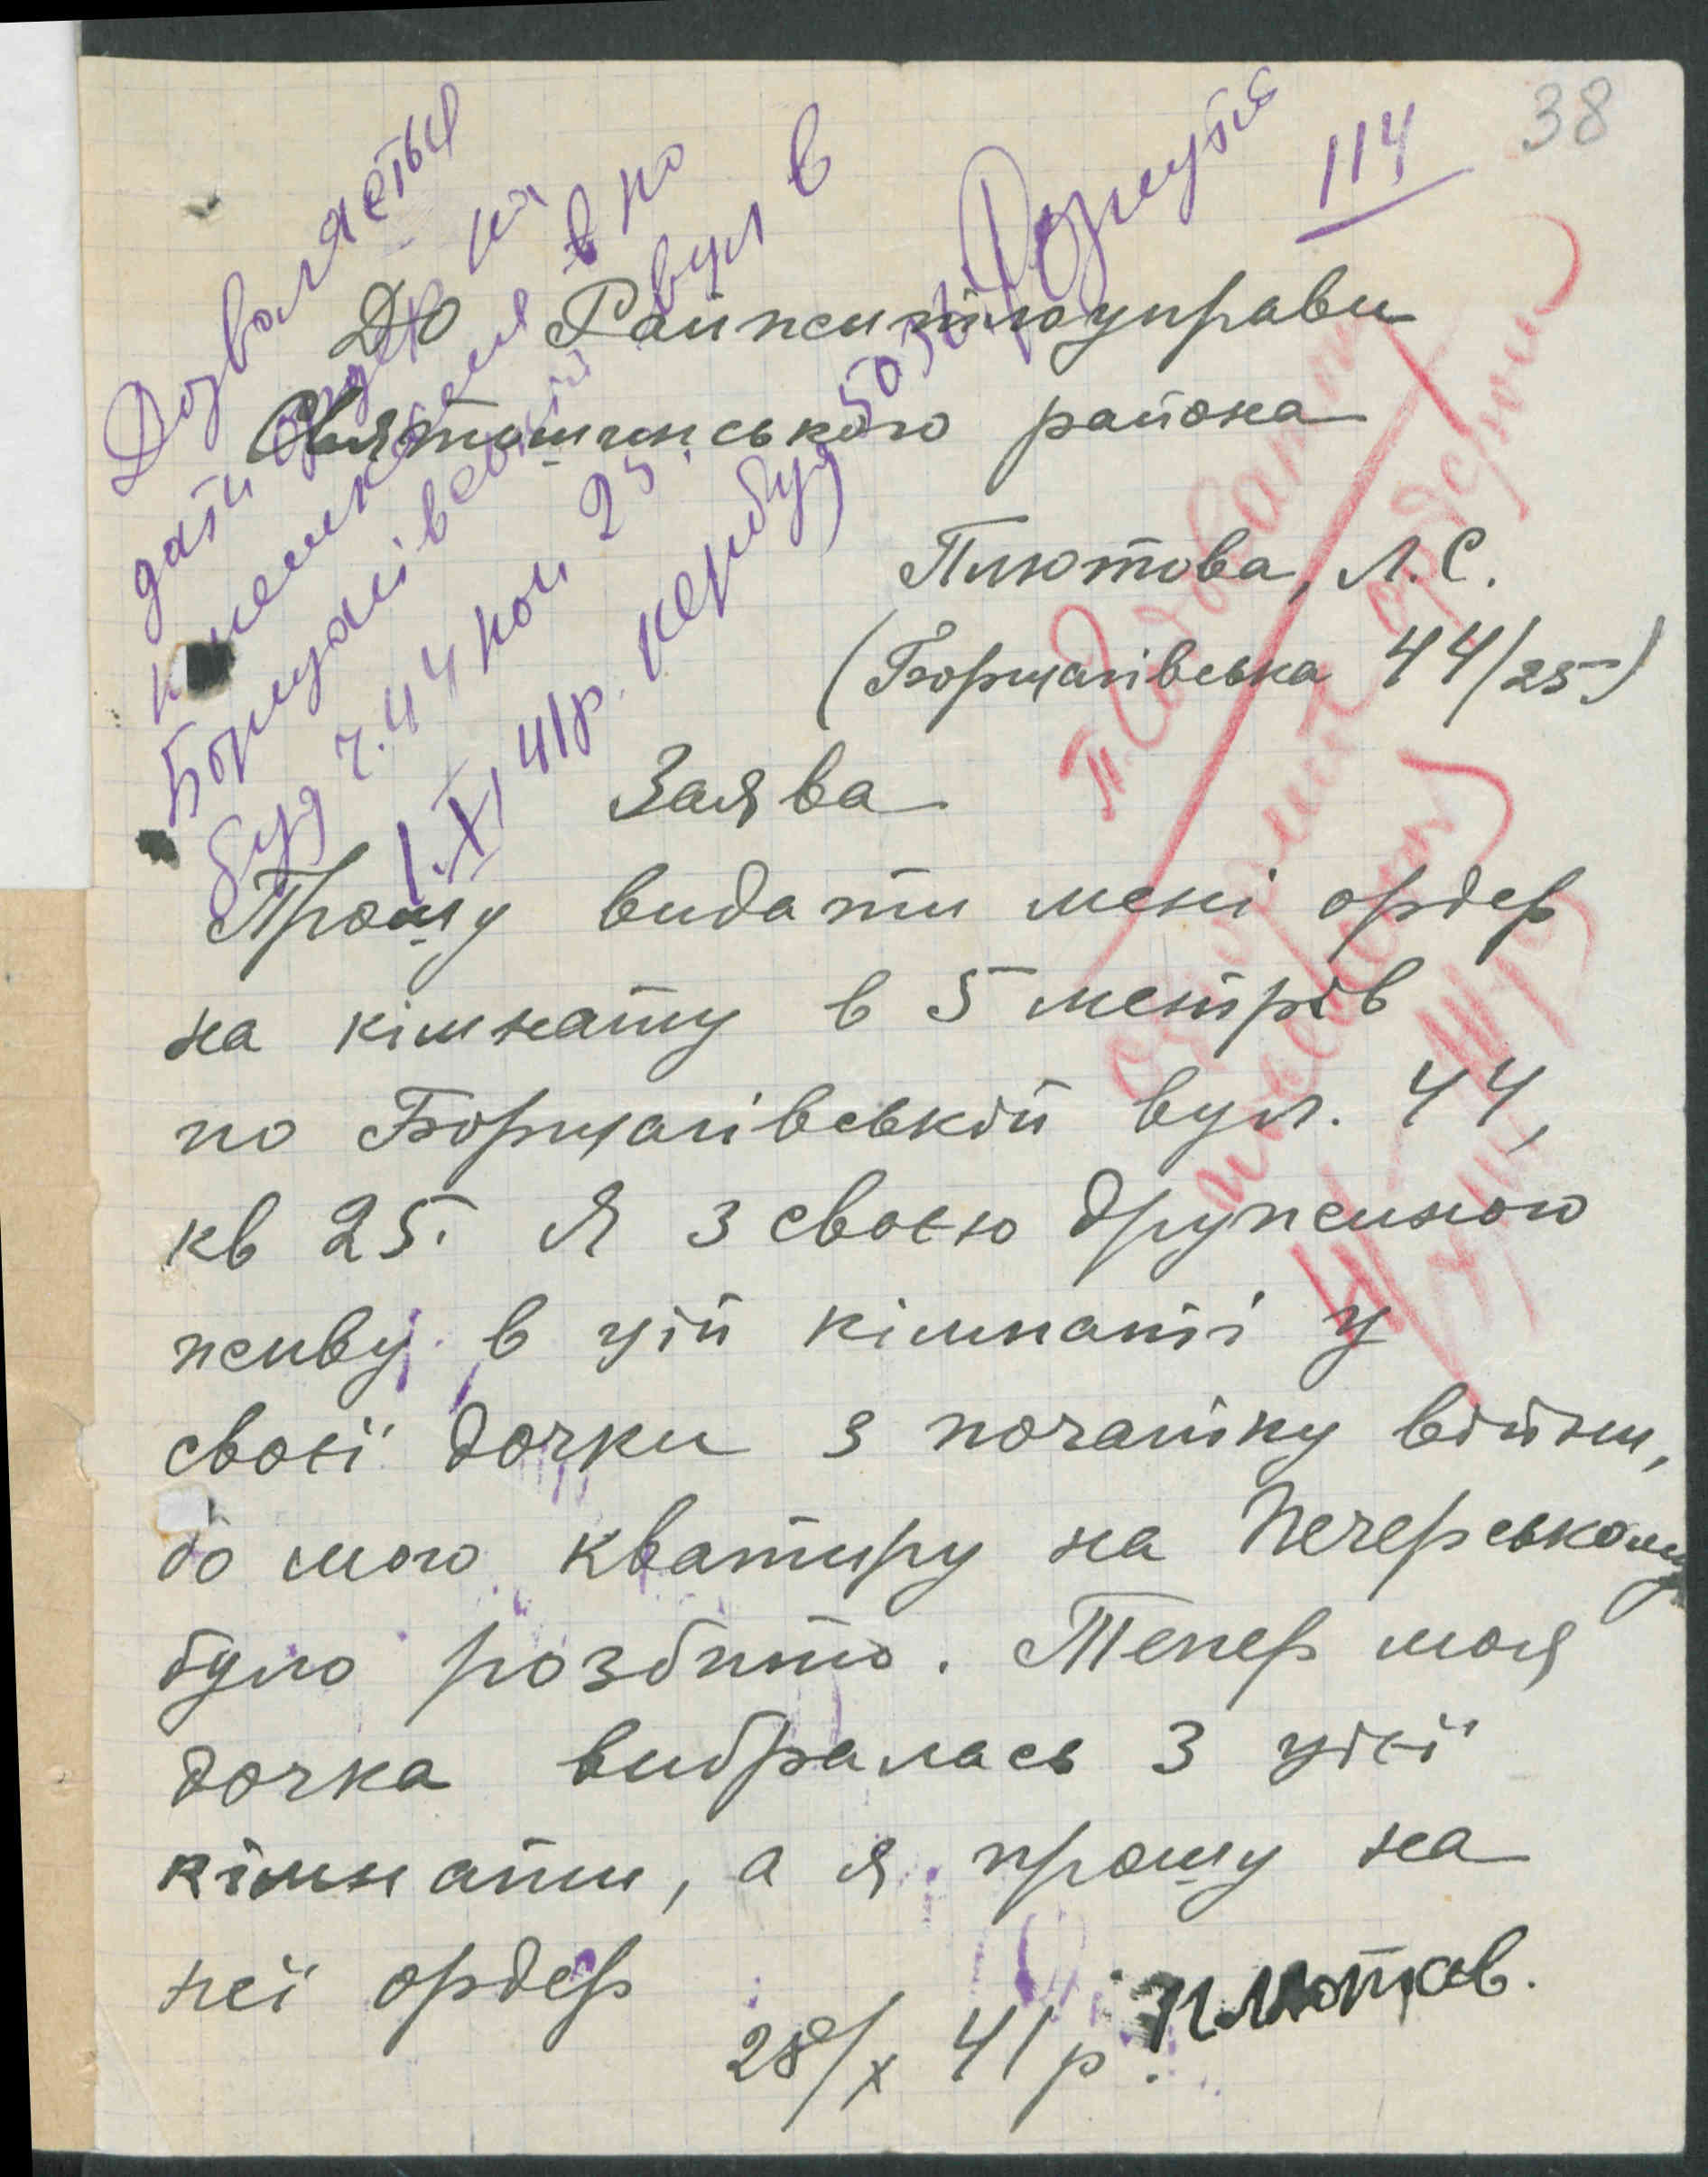 38
114
До Райжитлоуправи
Святошинського района
Плютова, Л.С.
(Борщагівська 44/25)
Заява
Прошу видати мені ордер
на кімнату в 5 метрів
по Борщагівській вул. 44,
кв 25. Я з своєю дружиною
живу в цій кімнаті у
своєї дочки з початку війни,
бо мою кватиру на Печерському
було розбито. Тепер моя
дочка вибралась з цієї
кімнати, а я прошу на
неї ордер
28/X 41 р. Плютов.
Дозволяється
дати ордер на
в по
Борщагівській вул в
буд ч. 44 пом 25.
1.XI 41р. Кербуд 5032